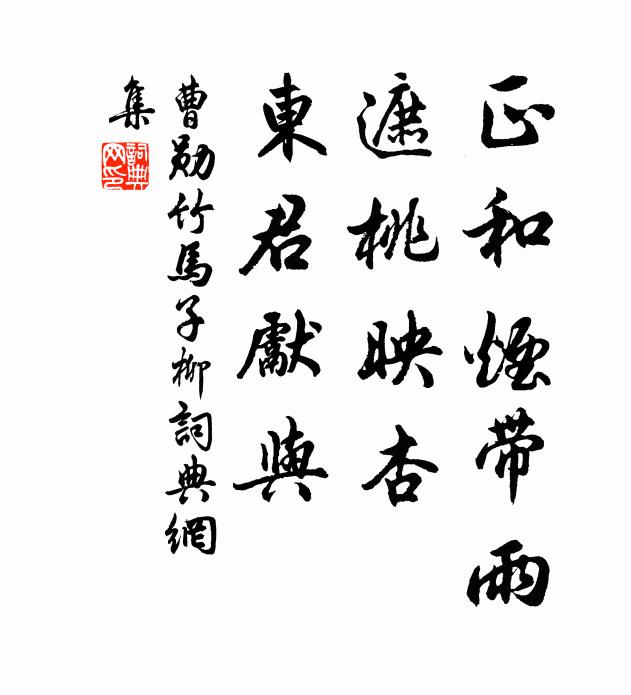 正和煙帶雨
遮桃映杏
東君獻與
曹勛竹馬子柳詞典網
集
詞典网印